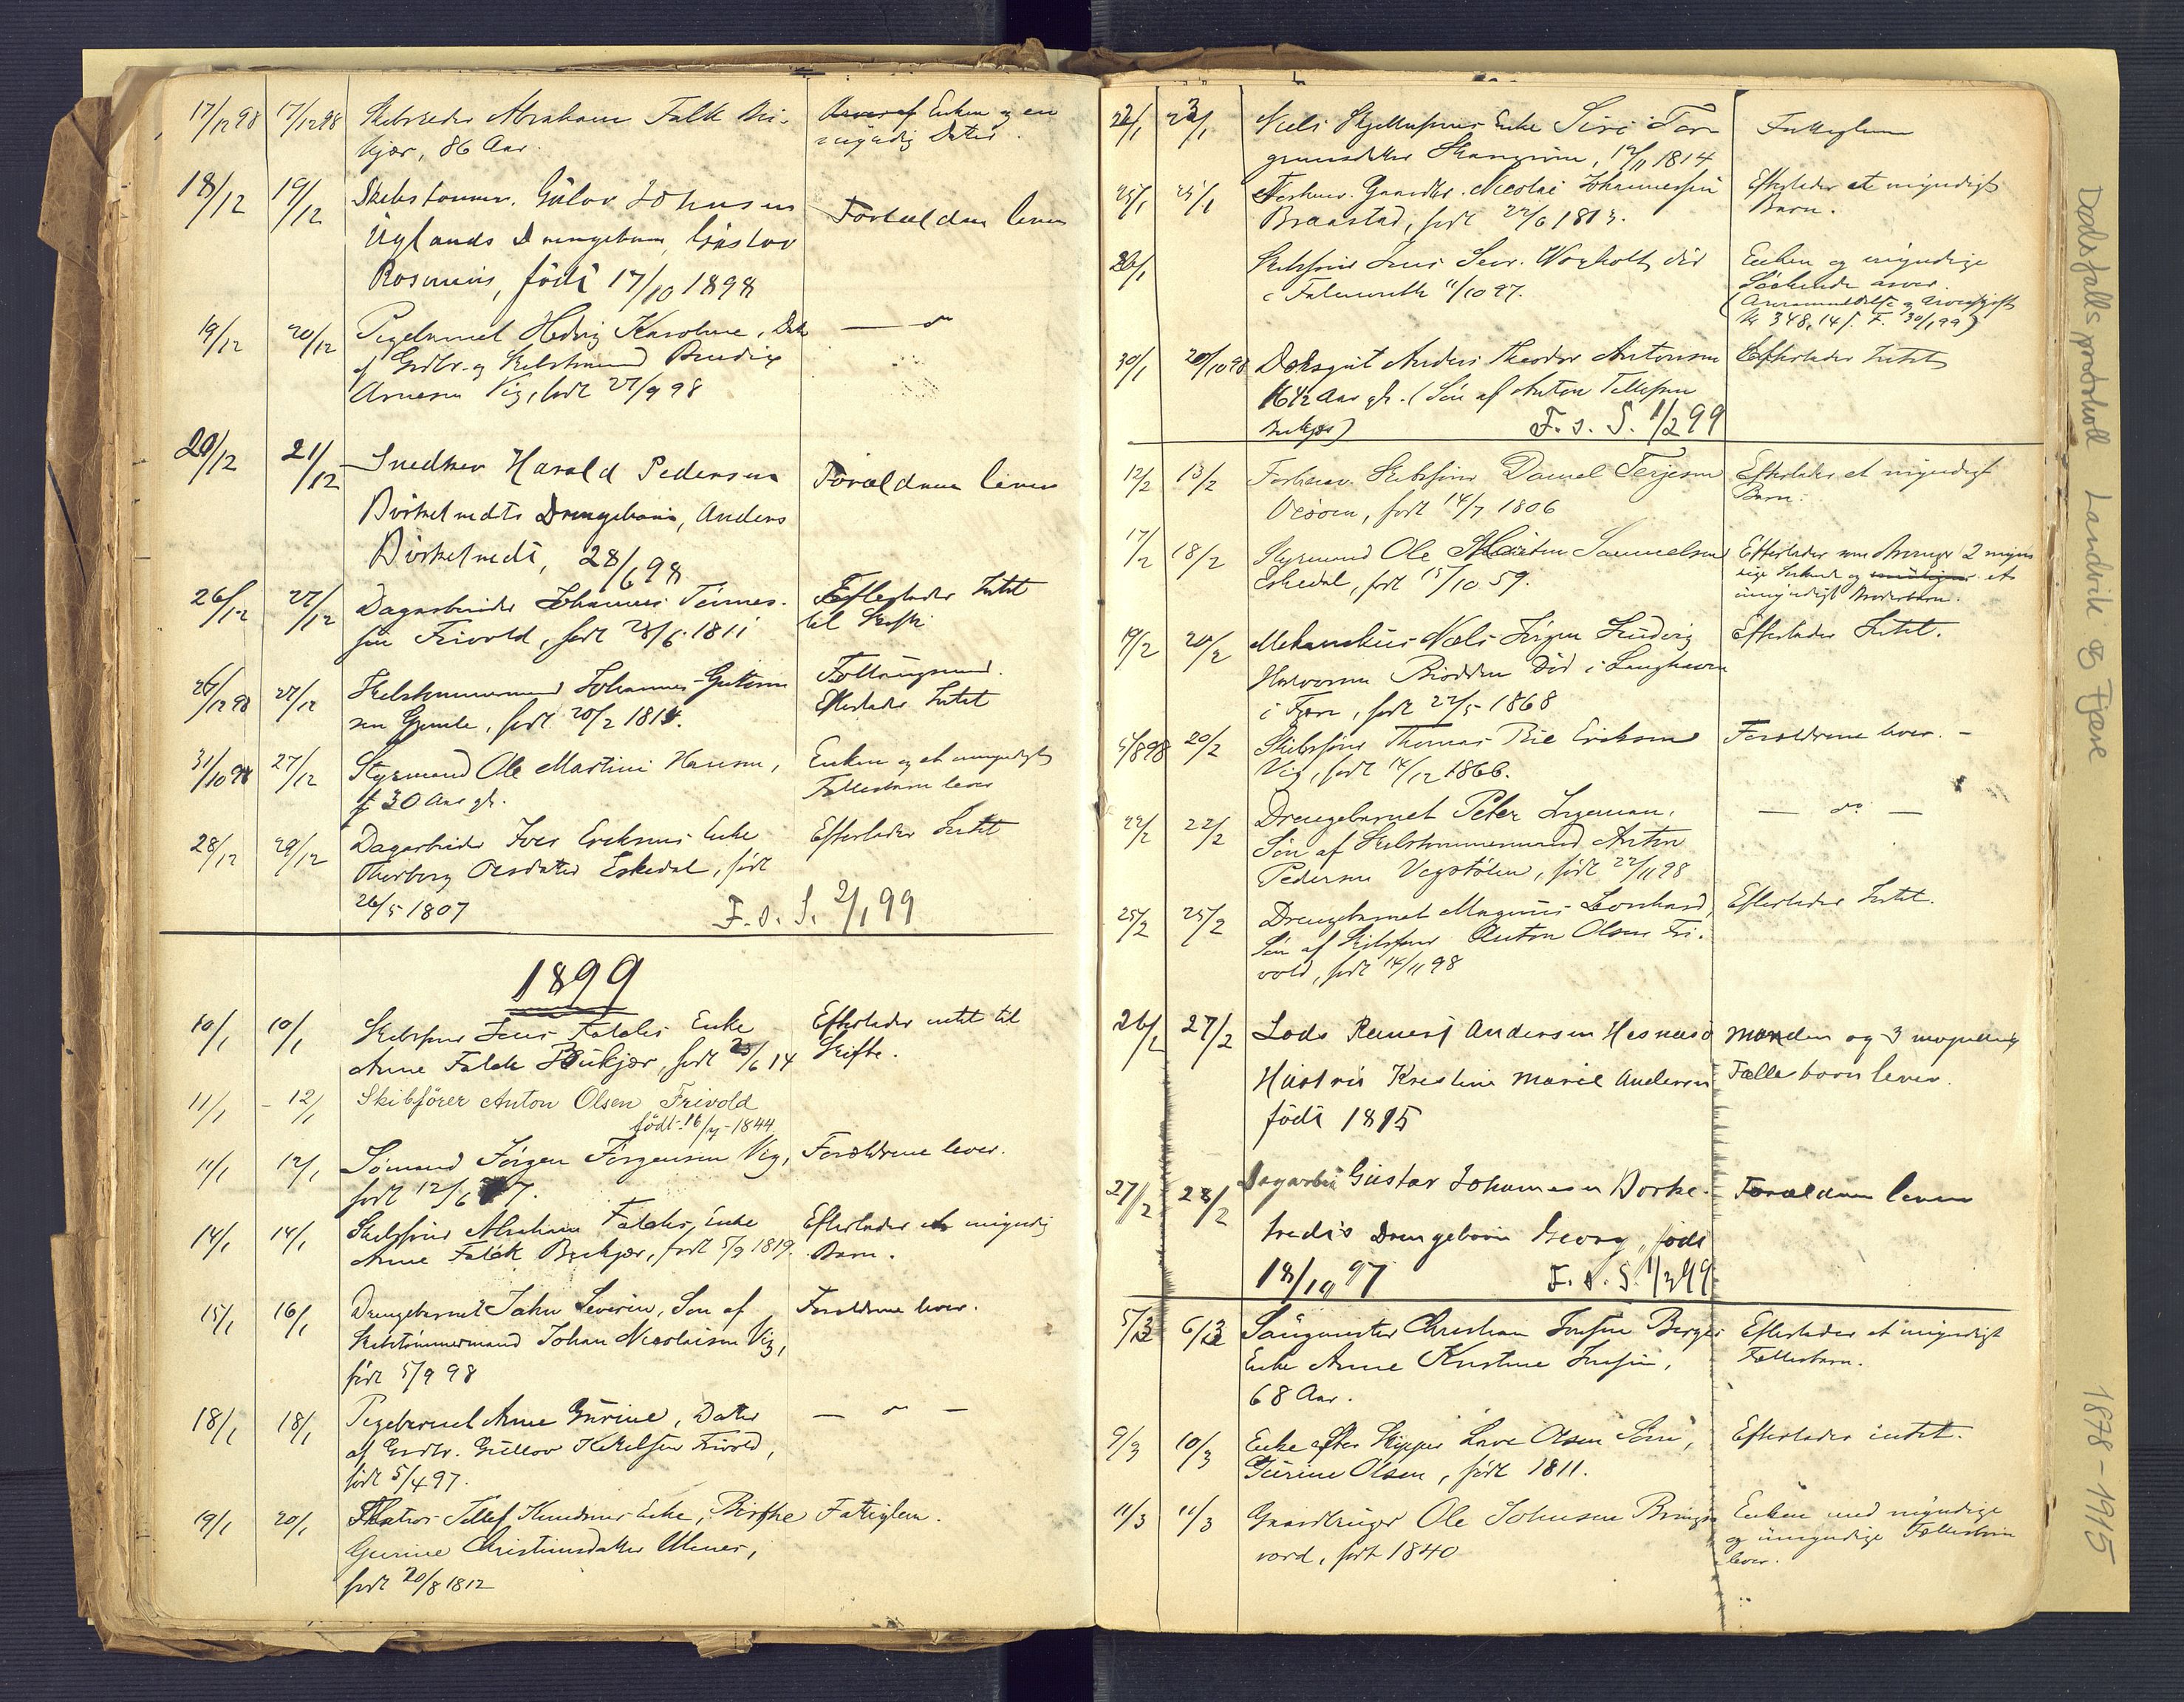 17/12 98 17/12 98 Skibsreder Abraham Falk Bii-
kjær, 86 Aar.
Enken og en
myndig Datter.
18/12 19/12 Skibstømmr. Gülov Johnsen
Uglands Drengebarn, Güstav
Rosinius, född 17/10 1898
Forældrene lever
19/12 20/12 Pigebarnet Hedvig Karoline, Dtr
af Grdbr. og Skibstømmd Bendix
Arnesen Vig, født 27/9 98
— " —
20/12 21/12 Snedker Harald Pedersen
Birketvedts Drengebarn, Anders
Birketvedt, 28/6 98
Forældrene lever
26/12 27/12 Dagarbeider Johannes Tønnes-
sen Frivold, født 28/6 1811
Efterlader Intet
til Skifte
26/12 98 27/12 Skibstømmermand Johannes Guttorm
sen Gjemle, født 20/2 181
Efterlader Intet
31/10 98 27/12 Styrmand Ole Martin Hansen,
30 Aar gl.
Enken og et umyndigt
Fællesbarn lever
28/12 29/12 Dagarbeider Iver Eriksens Enke
Thorborg Olsdatter Eskedal, født
26/5 1807
Efterlader Intet
F. s. S. 2/1 99
1899
10/1 10/1 Skibsfører Jens Falcks Enke
Anne Falck Biikjær, født 23/6 14
Efterlader intet til
Skifte.
11/1 - 12/1 Skibfører Anton Olsen Frivold
född 16/7 - 1844
11/1 12/1 Sømand Jørgen Jørgensen Vig,
født 12/6 7.
Forældrene lever.
14/1 14/1 Skibsfører Abraham Falcks, Enke
Anne Falck Biekjær, født 5/9 1819.
Efterlader et myndig
Barn.
15/1 16/1 Drengebarnet John Severin, Søn af
Skibstømmermand Johan Nicolaisen Vig,
født 5/9 98
Forældrene lever.
18/1 18/1 Pigebarnet Anne Gurine, Datter
af Grdbr. Gullov Ketilsen Frivold,
født 5/4 97.
— " —
19/1 20/1 Tellef Knudsens Enke, Birthe
Gurine Christensdatter
født 20/8 1812
Fattiglem.
22/1 23/1 Niels Enke Siri Tor
grimsdatter 12/11 1814
Fattiglem
25/1 25/1 Forhenv. Gaardbr. Nicolai Johannessen
Braastad, født 22/6 1813.
Efterlader et myndigt
Barn.
26/1 Skibsfører Jens Sev. Woxholt, død
i Falmouth 11/10 97.
Enken og myndige
Søskende arver.
(Anmeldelse og Arveafgift
Kr 348,14 f. F. 30/1 99)
30/1 20/10 98 Dæksgut Anders Theodor Antonsen
16 1/2 Aar gl. (Søn af Anton Tellefsen
Biekjær)
Efterlader Intet
F. s. S. 1/2 99
12/2 13/2 Forhenv. Skibsfører Daniel Terjesen
født 14/7 1806
Efterlader et myndigt
Barn.
17/2 18/2 Styrmand Ole Martin Samuelsen
Eskedal, født 15/10 59.
Efterlader som Arvinger 2 myn
dige Søskende og et
umyndigt Broderbarn.
19/2 20/2 Mekanikus Niels Jørgen Ludvig
Halvorsen Rødden Død i Langhavn
i , født 22/5 1868
Efterlader Intet.
5/8 98 20/2 Skibsfører Thomas Eriksen
Vig, født 14/12 1866.
Forældrene lever. -
22/2 22/2 Drengebarnet Peter Ingeman,
Søn af Skibstømmermand Anton
Pedersen Vegstølen, født 22/11 98
— " —
25/2 25/2 Drengebarnet Magnus Leonhard,
Søn af Skibsfører Anton Olsen Fri-
vold, født 14/11 98
Efterlader Intet.
26/2 27/2 Lods Reinert Andersen Hesnesø
Hustru Kristine Marie Andersen
född 1815
Manden og 3 myndig
Fælles born lever.
27/2 28/2 Dagarbei Güstav Johannesen Birke-
tvedts Drengebarn Georg, född
18/10 97
Forældrene lever
F. s. S. 1/3 99
5/3 6/3 Saugmester Christian Jensen Berges
Enke Anne Kristine Jensen,
68 Aar.
Efterlader et myndigt
Fællesbarn.
9/3 10/3 Enke efter Skipper Lars Olsen
Gurine Olsen, født 1811.
Efterlader intet.
11/3 11/3 Gaardbruger Ole Johnsen Brings
vord, født 1840
Enken med myndige
og umyndige Fællesbørn
lever.
Dødsfallsprotokoll Landvik og Fjære 1878-1915